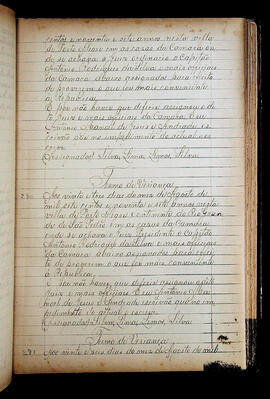 centos e noventa e sete annos nesta villa
de Porto Alegre em as casas da Camara on
de se achava o Juiz ordinario o Capitão
Antonio Rodrigues da Silva e mais officiaes
da Camara abaixo assignados para effeito
de proverem o que for mais conveniente
a Republica.
E por não haver que deferir assignou o di
to Juiz e mais officiaes da Camara. Eu
Antonio Manoel de Jesus e Andrade es
crivão no impedimento do actual es
crevi.
(Assignados) Silva, Lima, Lemos, Silva
Termo de Vereança
Aos vinte e tres dias do mez de Agosto de
mil sete centos e noventa e sete annos nesta
villa de Porto Alegre Continente do Rio Gran
de de São Pedro em as casas da Camara
onde se achava o Juiz Presidente o Capitão
Antonio Rodrigues da Silva e mais officiaes
da Camara abaixo assignados para effei
to de proverem o que for mais conveniente
á Republica.
E por não haver que deferir assignou o dito
Juiz e mais officiaes. Eu Antonio Ma
noel de Jesus e Andrade escrivão no im
pedimento do actual o escrevi.
(Assignados) Silva, Lima, Lemos, Silva
Termo de Vereança
281 Aos vinte e seis dias do mez de Agosto de mil